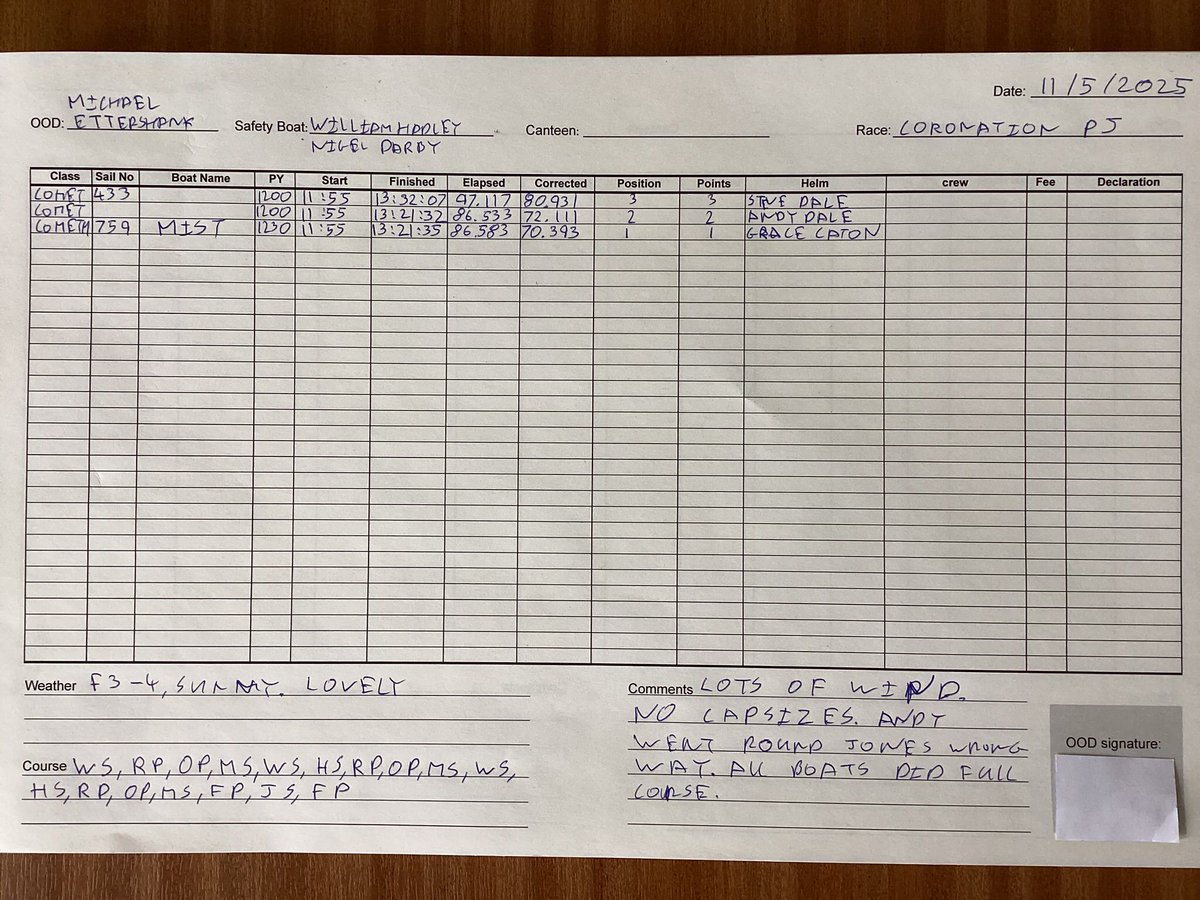 Date: 11/5/2025
MICHAEL
OOD: ETTERSHANK Safety Boat: WILLIAM HADLEY Canteen: Race: CORONATION PJ
NIGEL PARDY
Class Sail No Boat Name PY Start Finished Elapsed Corrected Position Points Helm crew Fee Declaration
COMET 433 1200 11:55 13:32:07 97.117 80.931 3 3 STVE DALE
COMET 1200 11:55 13:21:32 86.533 72.111 2 2 ANDY DALE
COMETM 759 MIST 1230 11:55 13:21:35 86.583 70.393 1 1 GRACE CATON
Weather F3-4, SUNNY. LOVELY
Comments LOTS OF WIND.
NO CAPSIZES. ANDY
WENT ROUND JONES WRONG
OOD signature:
WAY. ALL BOATS DID FULL
COURSE.
Course WS, RP, OP, MS, WS, HS, RP, OP, MS, WS,
HS, RP, OP, MS, FP, JS, FP